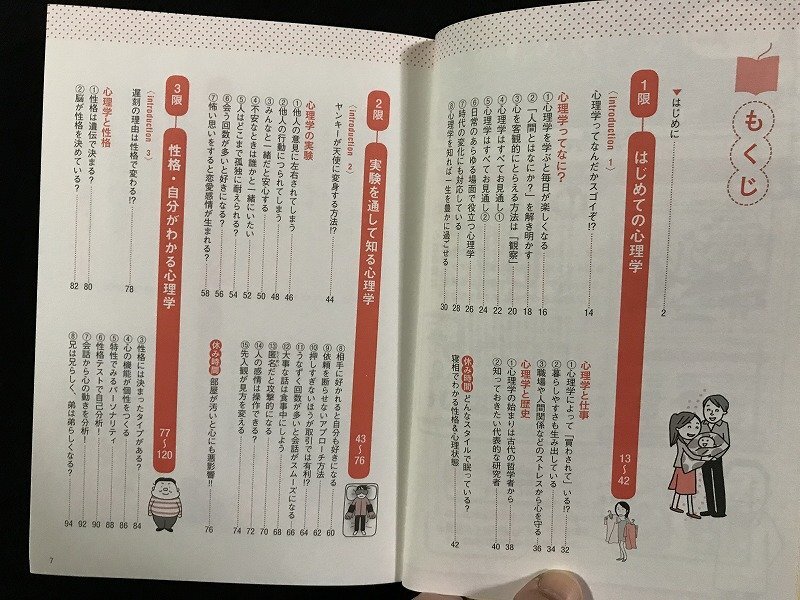 もくじ
▼はじめに 2
1限 はじめての心理学 13〜42
〈introduction 1〉
心理学ってなんだかスゴイぞ!? 14
心理学ってなに?
①心理学を学ぶと毎日が楽しくなる 16
②「人間とはなにか?」を解き明かす 18
③心を客観的にとらえる方法は「観察」 20
④心理学はすべてお見通し① 22
⑤心理学はすべてお見通し② 24
⑥日常のあらゆる場面で役立つ心理学 26
⑦時代の変化にも対応している 28
⑧心理学を知れば一生を豊かに過ごせる 30
心理学と仕事
①心理学によって「買わされて」いる!? 32
②暮らしやすさも生み出している 34
③職場や人間関係などのストレスから心を守る 36
心理学と歴史
①心理学の始まりは古代の哲学者から 38
②知っておきたい代表的な研究者 40
休み時間 どんなスタイルで眠っている?
寝相でわかる性格&心理状態 42
2限 実験を通して知る心理学 43〜76
〈introduction 2〉
ヤンキーが天使に変身する方法!? 44
心理学の実験
①他人の意見に左右されてしまう 46
②他人の行動につられてしまう 48
③みんなと一緒だと安心する 50
④不安なときは誰かと一緒にいたい 52
⑤人はどこまで孤独に耐えられる? 54
⑥会う回数が多いと好きになる? 56
⑦怖い思いをすると恋愛感情が生まれる? 58
⑧相手に好かれると自分も好きになる 60
⑨依頼を断らせないアプローチ方法 62
⑩押しすぎないほうが取引では有利!? 64
⑪うなずく回数が多いと会話がスムーズになる 66
⑫大事な話は食事中にしよう 68
⑬匿名だと攻撃的になる 70
⑭人の感情は操作できる? 72
⑮先入観が見方を変える 74
休み時間 部屋が汚いと心にも悪影響!! 76
3限 性格・自分がわかる心理学 77〜120
〈introduction 3〉
遅刻の理由は性格で変わる!? 78
心理学と性格
①性格は遺伝で決まる? 80
②脳が性格を決めている? 82
③性格には決まったタイプがある? 84
④心の機能が個性をつくる 86
⑤特性でみるパーソナリティ 88
⑥性格テストで自己分析! 90
⑦会話から心の動きを分析! 92
⑧兄は兄らしく、弟は弟らしくなる? 94
7